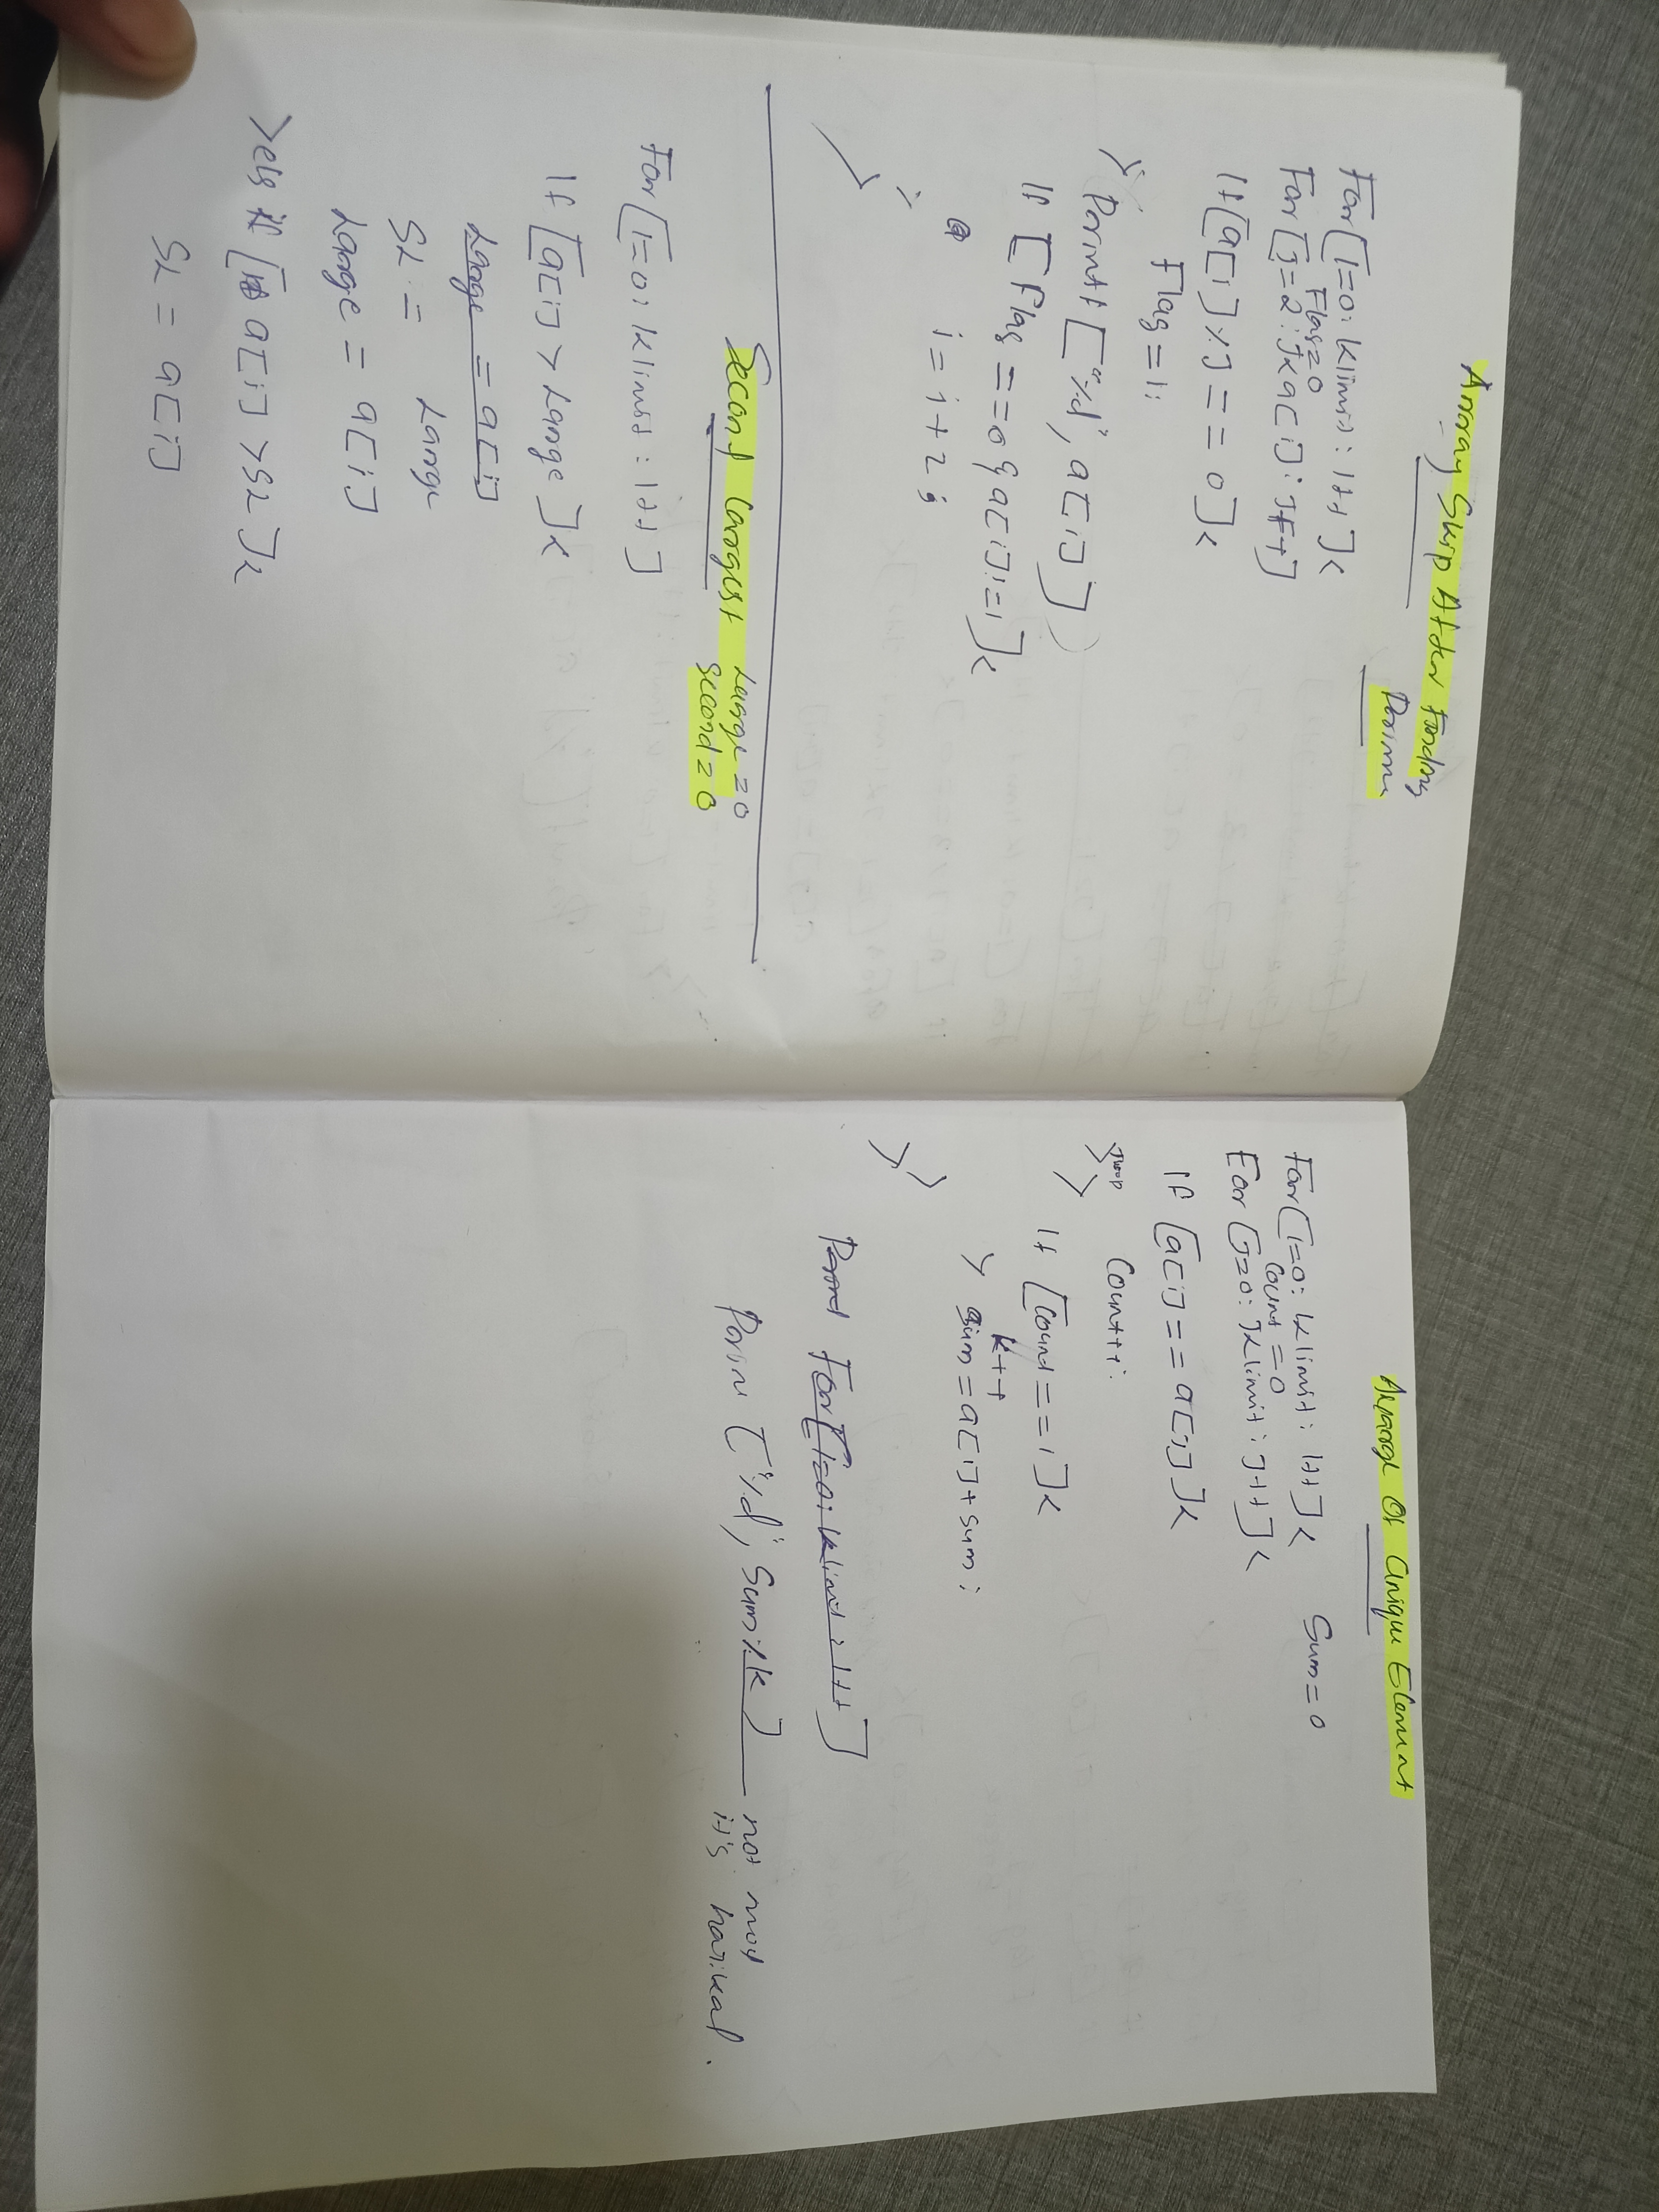 Array Skip After Finding
Prime
For [i=0: i<limit: i++] {
Flag=0
For [j=2: j<a[i]: j++]
If [a[i]%j == 0] {
Flag=1;
}
Printf ["%d", a[i]]
If [Flag ==0 & a[i]!=1] {
i = i + 2;
}
}
Second Largest
Large = 0
second = 0
For [i=0: i<limit: i++]
If [a[i] > Large] {
Large = a[i]
SL = Large
Large = a[i]
} els if [a[i] > SL] {
SL = a[i]
Avarage Of Unique Element
Sum = 0
For [i=0: i<limit: i++] {
Count = 0
For [j=0: j<limit: j++] {
If [a[i] == a[j]] {
Count++;
}
}
If [Count == 1] {
k++
} Sum = a[i] + sum;
}
}
For [i=0: i<limit: i++]
Prin ["%d", Sum%k] not mod
it's